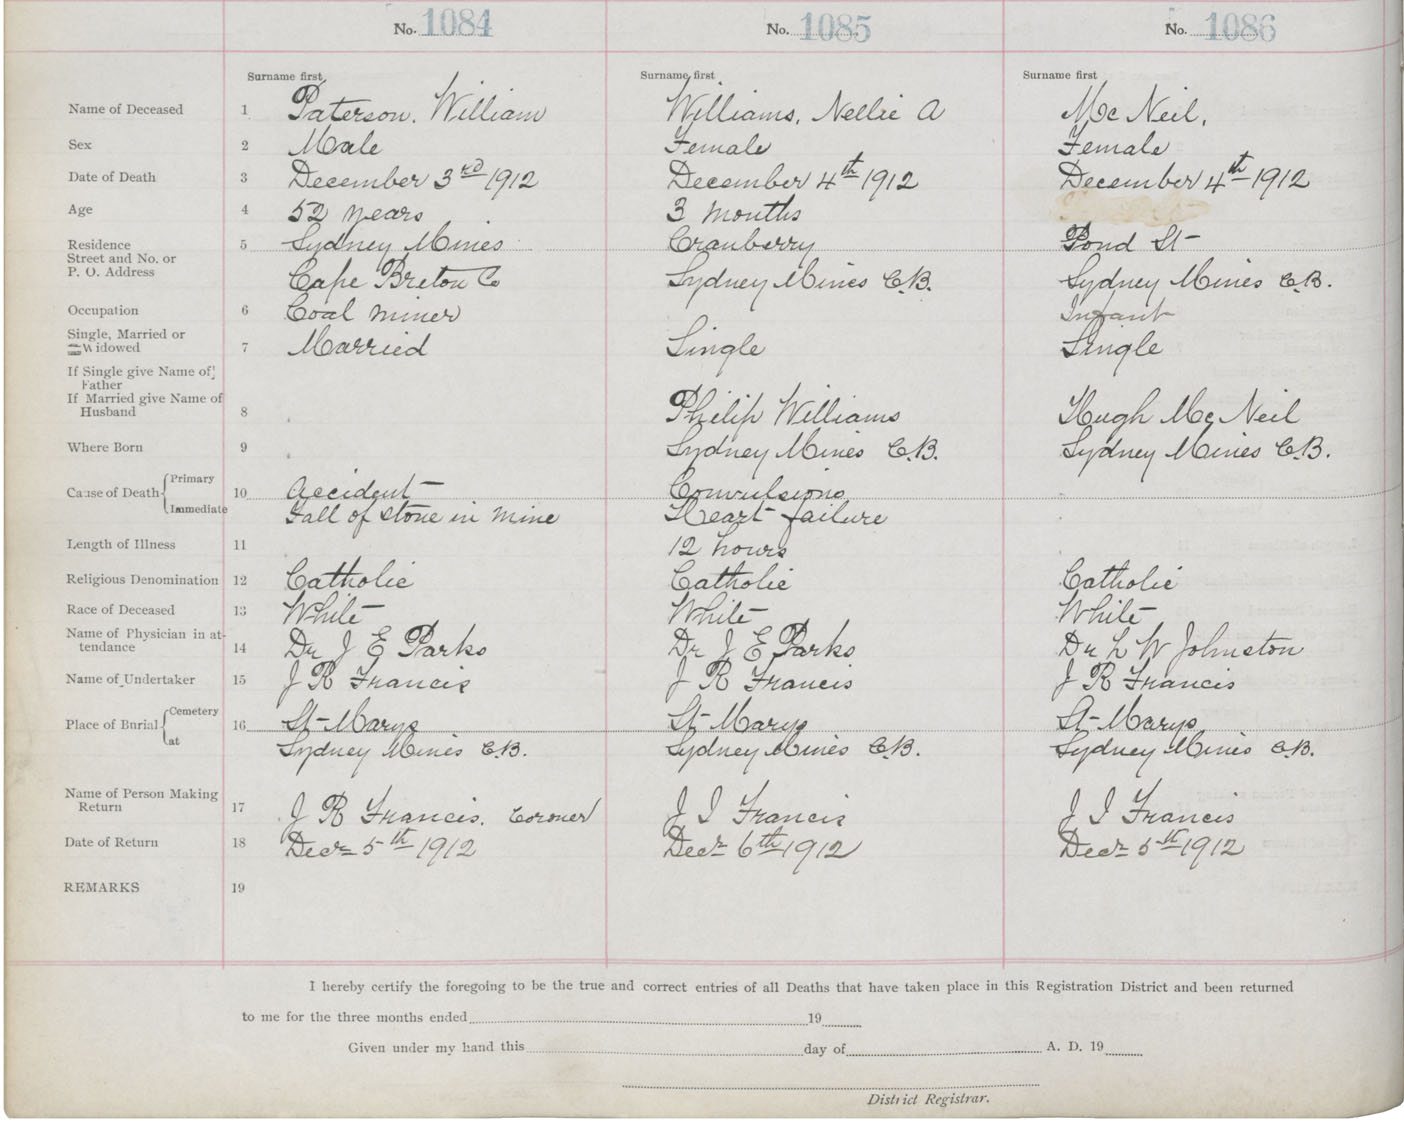 No. 1084 No. 1085 No. 1086
Surname first Surname first Surname first
Name of Deceased 1 Paterson, William Williams, Nellie A Mc Neil,
Sex 2 Male Female Female
Date of Death 3 December 3rd 1912 December 4th 1912 December 4th 1912
Age 4 52 years 3 months
Residence 5 Sydney Mines Cranberry Pond St
Street and No. or
P. O. Address Cape Breton Co Sydney Mines C.B. Sydney Mines C.B.
Occupation 6 Coal miner Infant
Single, Married or
Widowed 7 Married Single Single
If Single give Name of
Father
If Married give Name of
Husband 8 Philip Williams Hugh Mc Neil
Where Born 9 Sydney Mines C.B. Sydney Mines C.B.
Primary
Cause of Death 10 Accident Convulsions
Immediate Fall of stone in mine Heart failure
Length of Illness 11 12 hours
Religious Denomination 12 Catholic Catholic Catholic
Race of Deceased 13 White White White
Name of Physician in at-
tendance 14 Dr J E Parks Dr J E Parks Dr L W Johnston
Name of Undertaker 15 J R Francis J R Francis J R Francis
Cemetery
Place of Burial 16 St Marys St Marys St Marys
at Sydney Mines C.B. Sydney Mines C.B. Sydney Mines C.B.
Name of Person Making
Return 17 J R Francis, Coroner J I Francis J I Francis
Date of Return 18 Decr 5th 1912 Decr 6th 1912 Decr 5th 1912
REMARKS 19
I hereby certify the foregoing to be the true and correct entries of all Deaths that have taken place in this Registration District and been returned
to me for the three months ended 19
Given under my hand this day of A. D. 19
District Registrar.